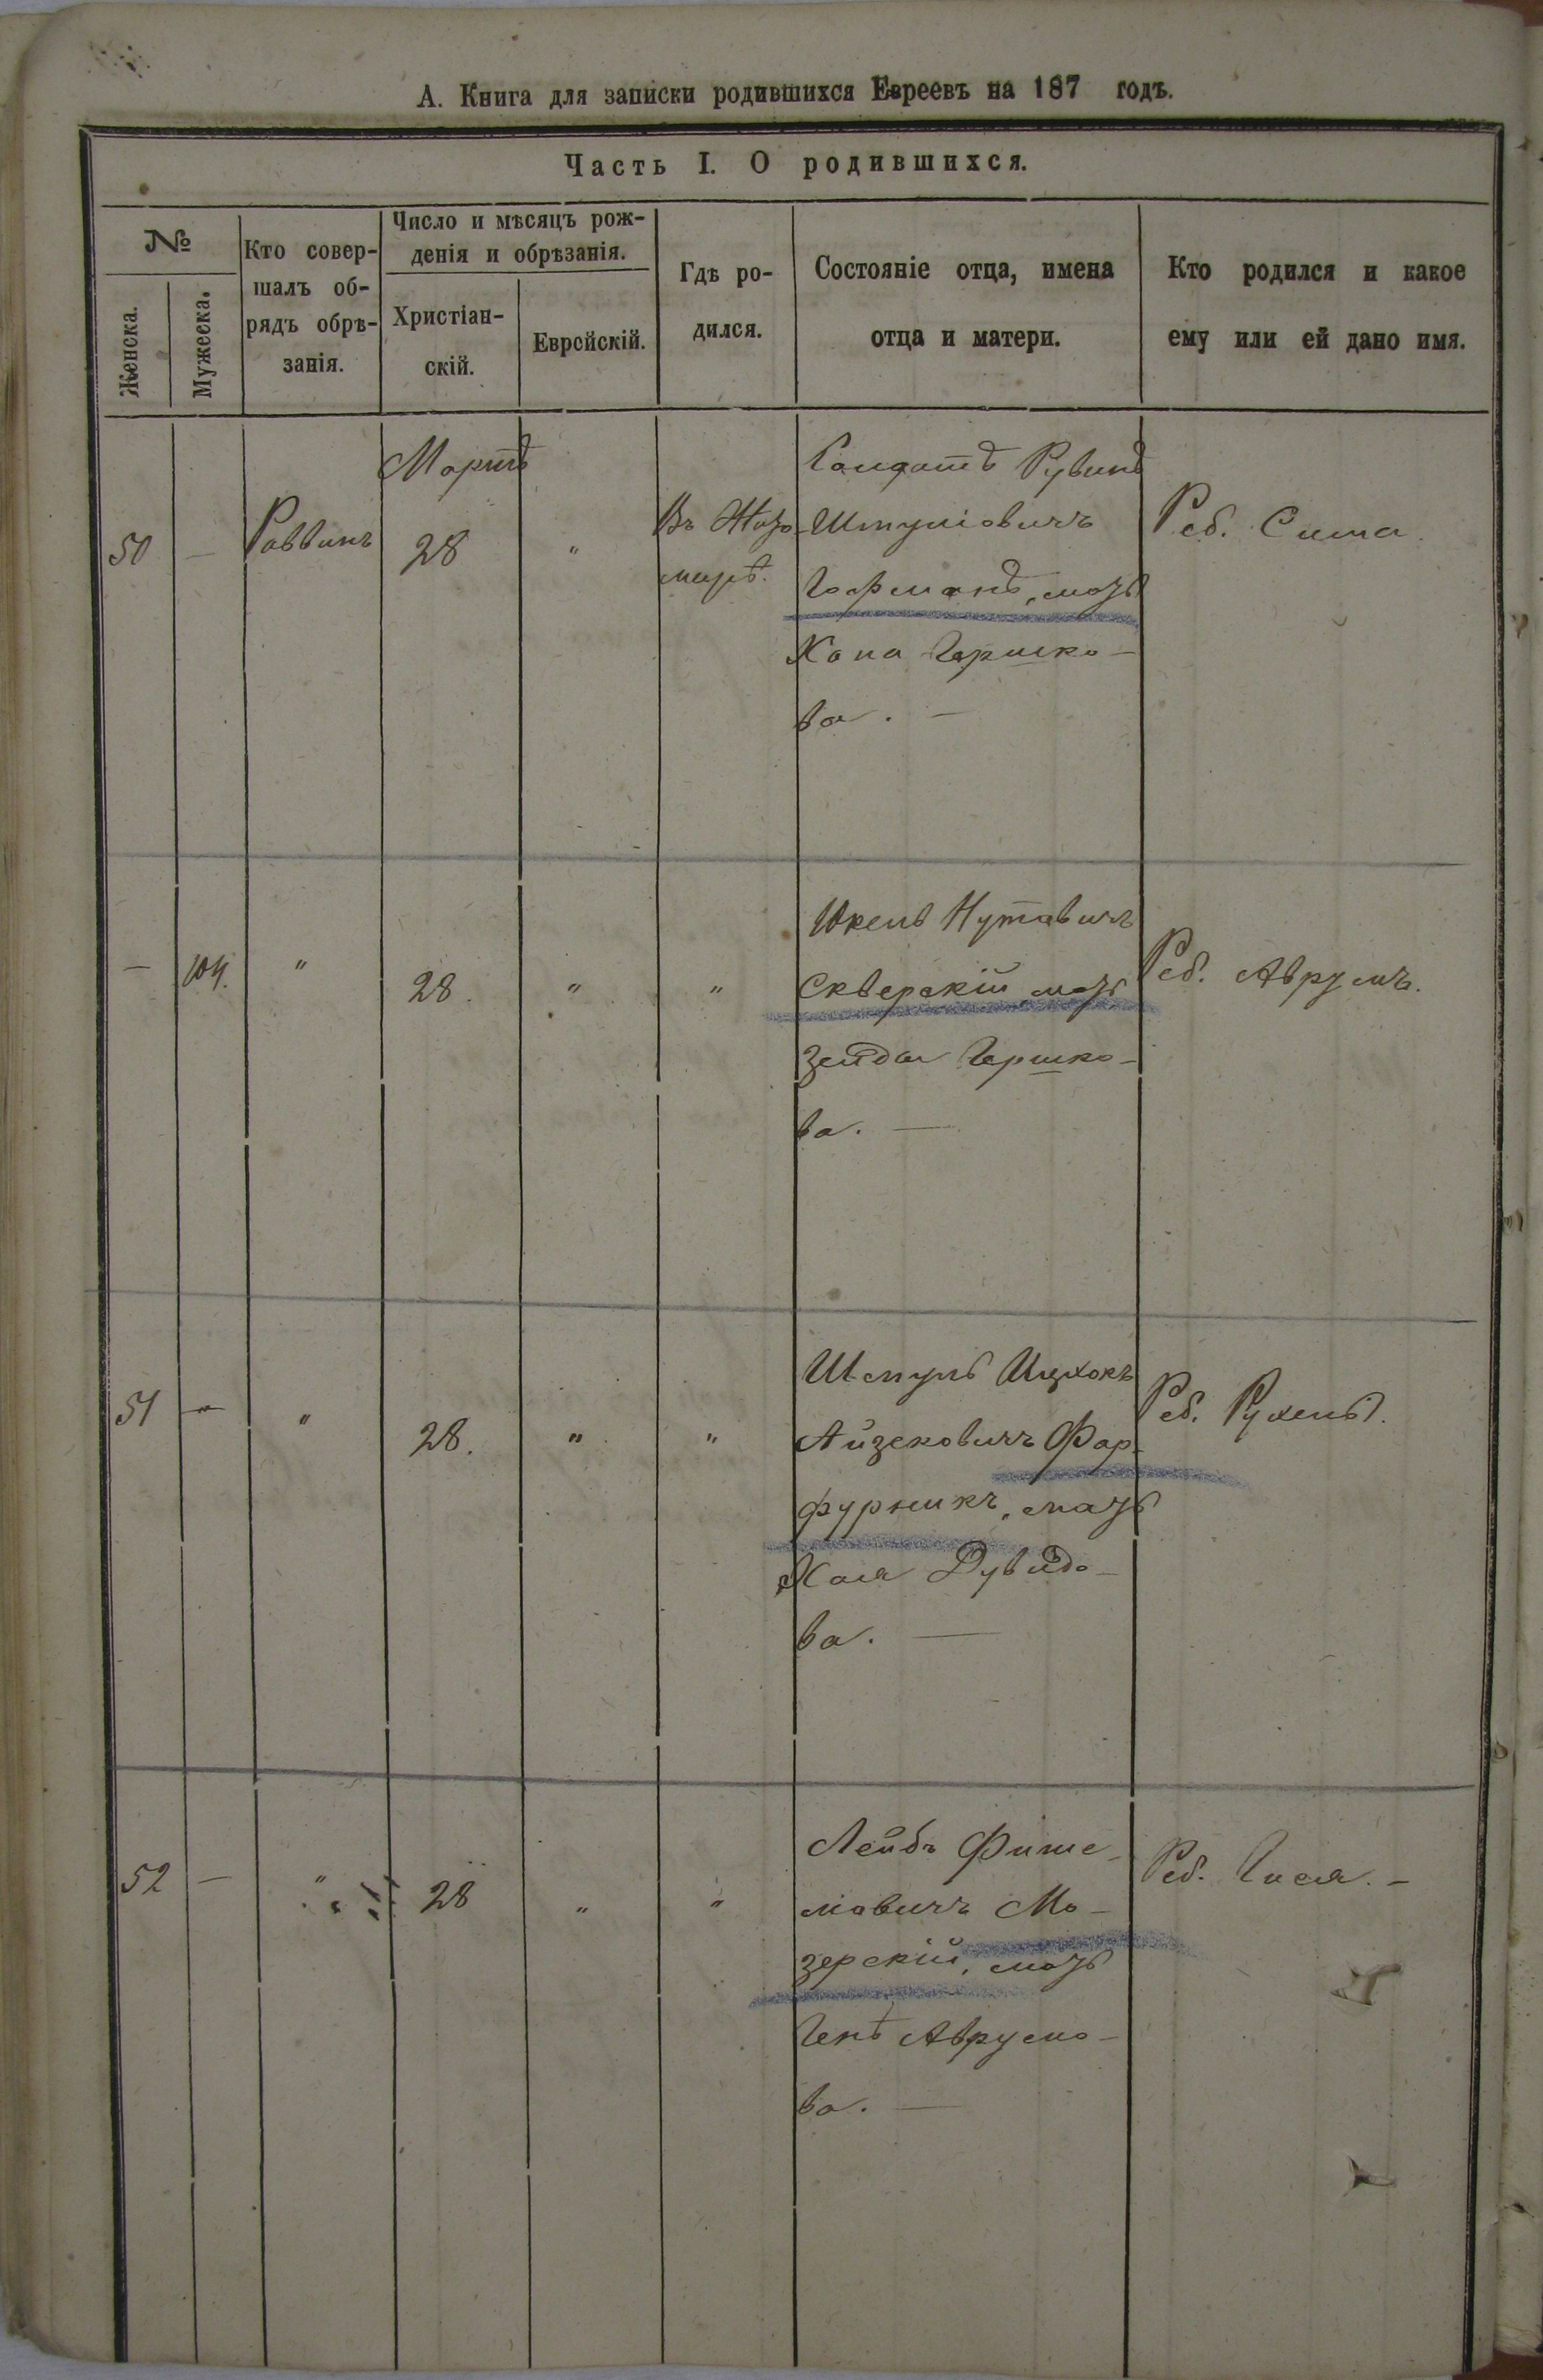 А. Книга для записки родившихся Евреевъ на 187 годъ.
Часть I. О родившихся.
№
Женска.
Мужеска.
Кто совер-
шалъ об-
рядъ обрѣ-
занія.
Число и мѣсяцъ рож-
денія и обрѣзанія.
Христіан-
скій.
Еврейскій.
Гдѣ ро-
дился.
Состояніе отца, имена
отца и матери.
Кто родился и какое
ему или ей дано имя.
50
—
Раввинъ
Мартъ
28
"
Въ
Солдатъ Рувинъ
Шмулiовичъ
Гофманъ, мать
Хана Гершко-
ва. —
Реб. Сима.
—
104.
"
28.
"
"
Юкель Нутавичъ
Скверскій, мать
Зейда Гершко-
ва. —
Реб. Аврумъ.
51
—
"
28.
"
"
Шмуль Ицхокъ
Айзековичъ Фар-
фурникъ, мать
Хая Дувидо-
ва. —
Реб. Рухель.
52
—
"
28
"
"
Лейбъ Фише-
лiовичъ Мо-
зерскій, мать
Аврумо-
ва. —
Реб. —